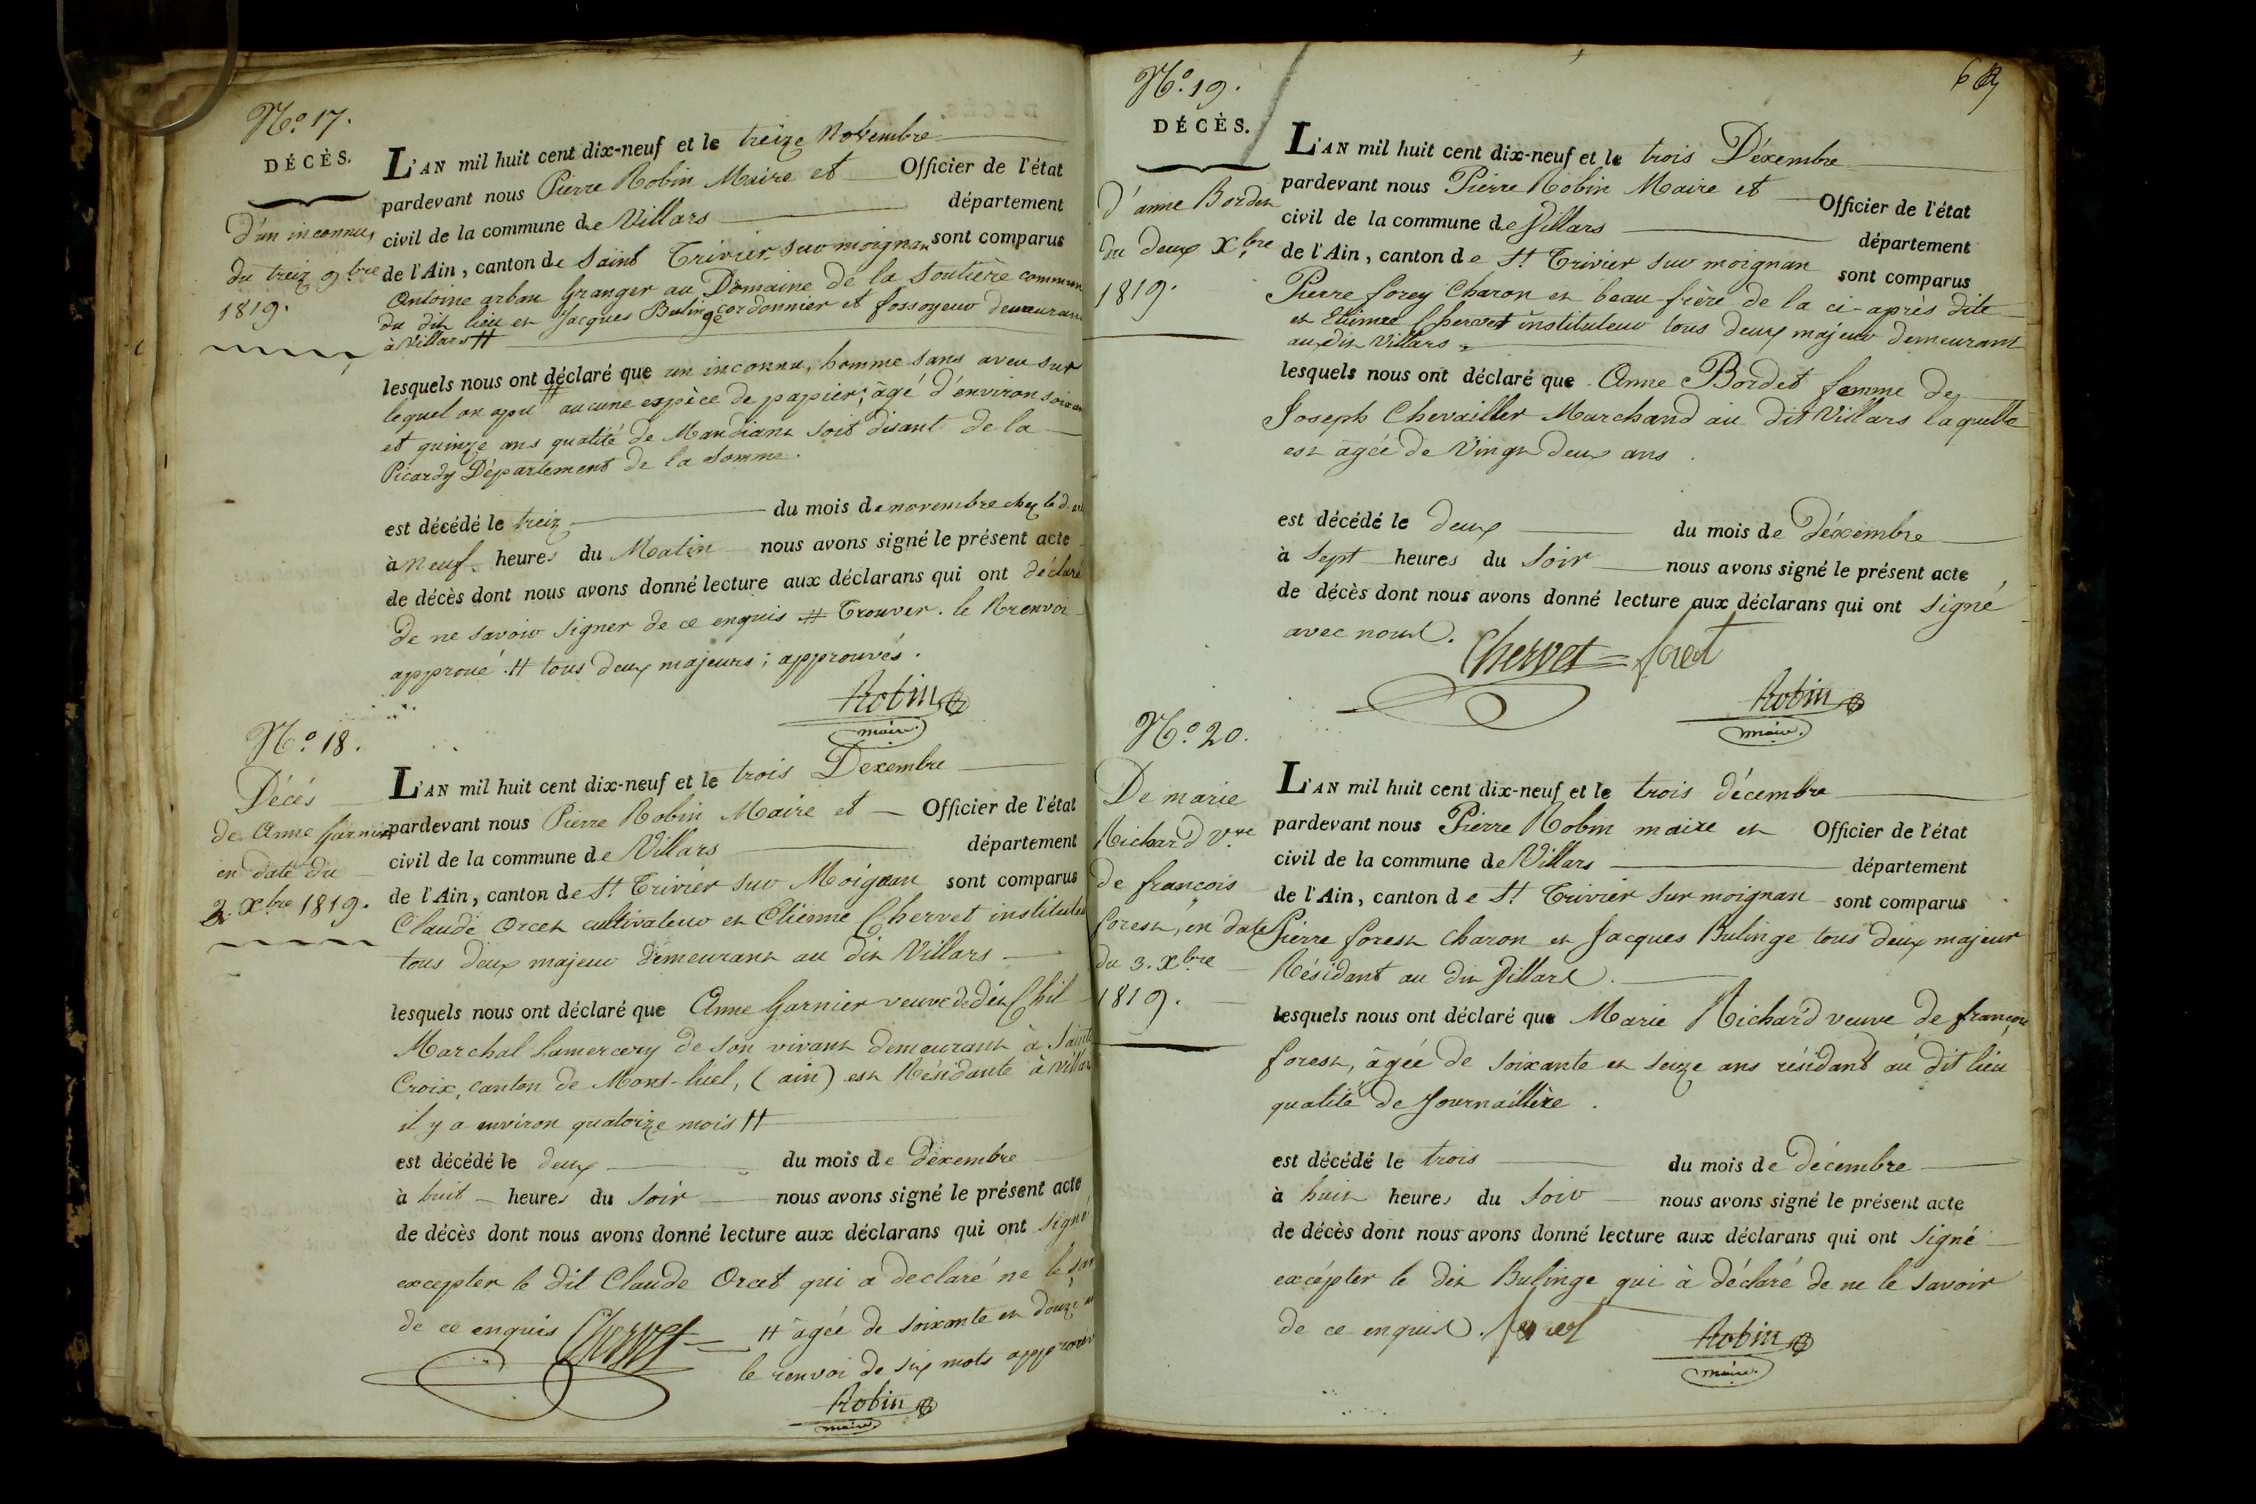 N.o 17.
DÉCÈS.
d'un inconnu,
du treiz 9.bre
1819.
L'AN mil huit cent dix-neuf et le treize Novembre
pardevant nous Pierre Robin Maire et Officier de l'état
civil de la commune de Villars département
de l'Ain, canton de Saint Trivier sur moignan sont comparus
Antoine arban Granger au Domaine de la soutière commune
du dit lieu et Jacques Bulinge cordonnier et fossoyeur demeurant
à Villars #
lesquels nous ont déclaré que un inconnu, homme sans aveu sur
lequel on apu # aucune espèce de papier; âgé d'environ soixan
et quinze ans qualité de Mandiant soit disant de la
Picardy Département de la Somme.
est décédé le treiz du mois de novembre chez le d.
à neuf heures du Matin nous avons signé le présent acte
de décès dont nous avons donné lecture aux déclarans qui ont déclaré
de ne savoir signer de ce enquis # Trouver. le Renvoi
approuvé # tous deux majeurs; approuvés.
Robin
maire.
N.o 18.
Décés
de Anne Garnier
en date du
2. Xbre 1819.
L'AN mil huit cent dix-neuf et le trois Dexembre
pardevant nous Pierre Robin Maire et Officier de l'état
civil de la commune de Villars département
de l'Ain, canton de St Trivier sur Moignan sont comparus
Claude Orcet cultivateur et Etienne Chervet instituteu
tous deux majeur demeurant au dit Villars
lesquels nous ont déclaré que Anne Garnier veuve de déft Chil
Marchal Lamercery de son vivant demeurant à Sainte
Croix, canton de Mont-luel, (ain) est Résidante à Villars
il y a environ quatorize mois #
est décédé le deux du mois de dexembre
à huit heures du soir nous avons signé le présent acte
de décès dont nous avons donné lecture aux déclarans qui ont signé
excepter le dit Claude Orcet qui a declaré ne le sav
de ce enquis Chervet # âgée de soixante et douze an
le renvoi de six mots approuvé
Robin
maire
6
N.o 19.
DÉCÈS.
d'anne Bordet
du deux X.bre
1819.
L'AN mil huit cent dix-neuf et le trois Déxembre
pardevant nous Pierre Robin Maire et Officier de l'état
civil de la commune de Villars département
de l'Ain, canton de St Trivier sur moignan sont comparus
Pierre forey Charon et beau-frère de la ci-après dite
et Etienne Chervet instituteur tous deux majeur demeurant
au dit Villars.
lesquels nous ont déclaré que Anne Bordet femme de
Joseph Chevailler Marchand au dit Villars laquelle
est âgée de Vingt deux ans.
est décédé le deux du mois de Déxembre
à sept heures du soir nous avons signé le présent acte
de décès dont nous avons donné lecture aux déclarans qui ont signé
avec nous. Chervet forest
Robin
maire.
N.o 20.
De marie
Richard v.ve
de françois
forest, en date
du 3. Xbre
1819.
L'AN mil huit cent dix-neuf et le trois décembre
pardevant nous Pierre Robin maire et Officier de l'état
civil de la commune de Villars département
de l'Ain, canton de St Trivier sur moignan sont comparus
Pierre forest Charon et Jacques Bulinge tous deux majeur
Résidant au dit Villars.
lesquels nous ont déclaré que Marie Richard veuve de françois
forest, âgée de soixante et seize ans résidant au dit lieu
qualité de Journaillière.
est décédé le trois du mois de décembre
à huit heures du soir nous avons signé le présent acte
de décès dont nous avons donné lecture aux déclarans qui ont signé
excépter le dit Bulinge qui à déclaré de ne le savoir
de ce enquis. forest
Robin
maire.